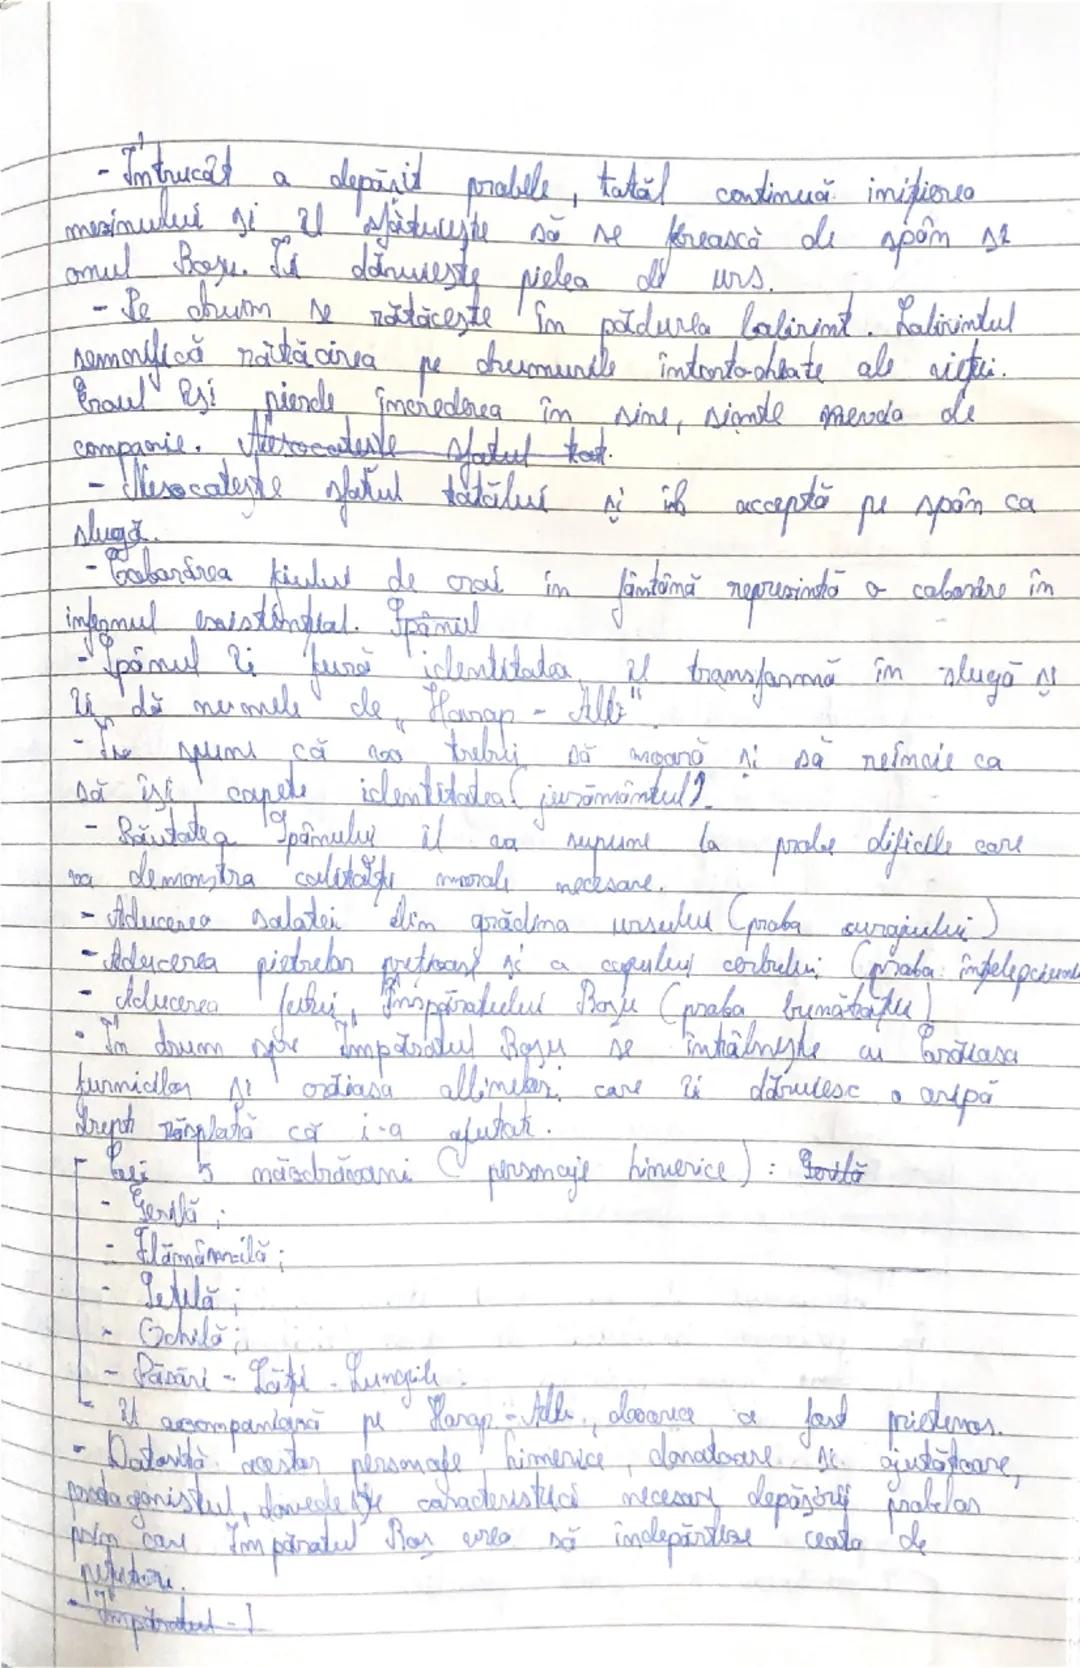 - Întrucât a depășit probele, tatăl continuă inițierea
mezinului și îl sfătuiește să se ferească de spân și
omul Roșu. Îi dăruiește pielea de urs.
- Pe drum se rătăcește în pădurea labirint. Labirintul
semnifică rătăcirea pe drumurile întortocheate ale vieții.
Eroul își pierde încrederea în sine, simte nevoia de
companie. Nesocotește sfatul tat.
- Nesocotește sfatul tatălui și îl acceptă pe spân ca
slugă.
- Coborârea fiului de crai în fântână reprezintă o coborâre în
infernul existențial. Spânul
- Spânul îi fură identitatea, îl transformă în slugă și
îi dă numele de „Harap - Alb".
- Îi spune că va trebui să moară și să reînvie ca
să își capete identitatea (jurământul).
- Răutatea Spânului îl va supune la probe dificile care
va demonstra calități morale necesare.
- Aducerea salatei din grădina ursului (proba curajului)
- Aducerea pietrelor prețioase și a capului cerbului (proba înțelepciunii
- Aducerea fetei Împăratului Roșu (proba bunătății)
• În drum spre Împăratul Roșu se întâlnește cu Crăiasa
furnicilor și crăiasa albinelor, care îi dăruiesc o aripă
drept răsplată că i-a ajutat.
Cei 5 năzdrăvani (personaje himerice): Gerilă
- Gerilă;
- Flămânzilă;
- Setilă;
- Ochilă;
- Păsări - Lăți - Lungilă.
Îl acompaniază pe Harap-Alb, deoarece a fost prietenos.
- Datorită acestor personaje himerice, donatoare și ajutătoare,
protagonistul, dovedește caracteristici necesare depășirii probelor
prin care Împăratul Roș vrea să îndepărteze ceata de
pețitori.
- Împăratul - I